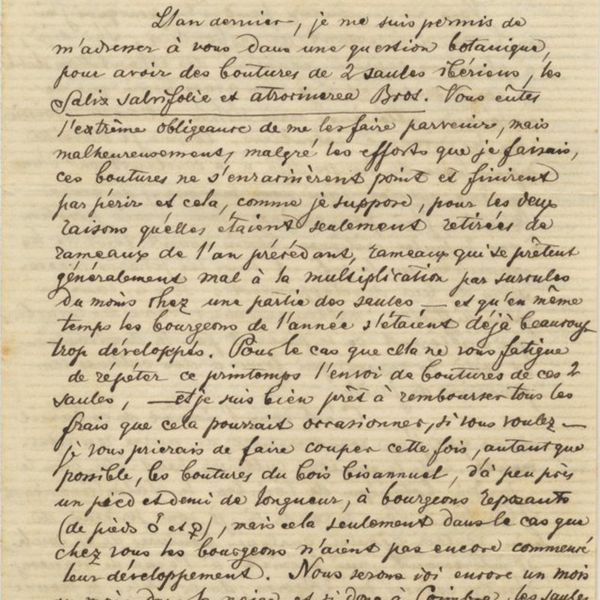 L'an dernier, je me suis permis de
m'adresser à vous dans une question botanique,
pour avoir des boutures de 2 saules ibériens, les
Salix salvifolie et atrocinerea Brot. Vous eûtes
l'extrême obligeance de me les faire parvenir, mais
malheureusement, malgré les efforts que je faisais,
ces boutures ne s'enracinèrent point et finirent
par périr et cela, comme je suppose, pour les deux
raisons qu'elles étaient seulement retirées de
rameaux de l'an précédant, rameaux qui se prêtent
généralement mal à la multiplication par surcules
du moins chez une partie des saules — et qu'en même
temps les bourgeons de l'année s'étaient déjà beaucoup
trop développés. Pour le cas que cela ne vous fatigue
de répéter ce printemps l'envoi de boutures de ces 2
saules, — et je suis bien prêt à rembourser tous les
frais que cela pourrait occasionner, si vous voulez —
je vous prierais de faire couper cette fois, autant que
possible, les boutures du bois bisannuel, d'à peu près
un pied et demi de longueur, à bourgeons reposants
(de pieds ♂ et ♀), mais cela seulement dans le cas que
chez vous les bourgeons n'aient pas encore commencé
leur développement. Nous serons ici encore un mois
dans la neige et si donc à Coimbre, les saules